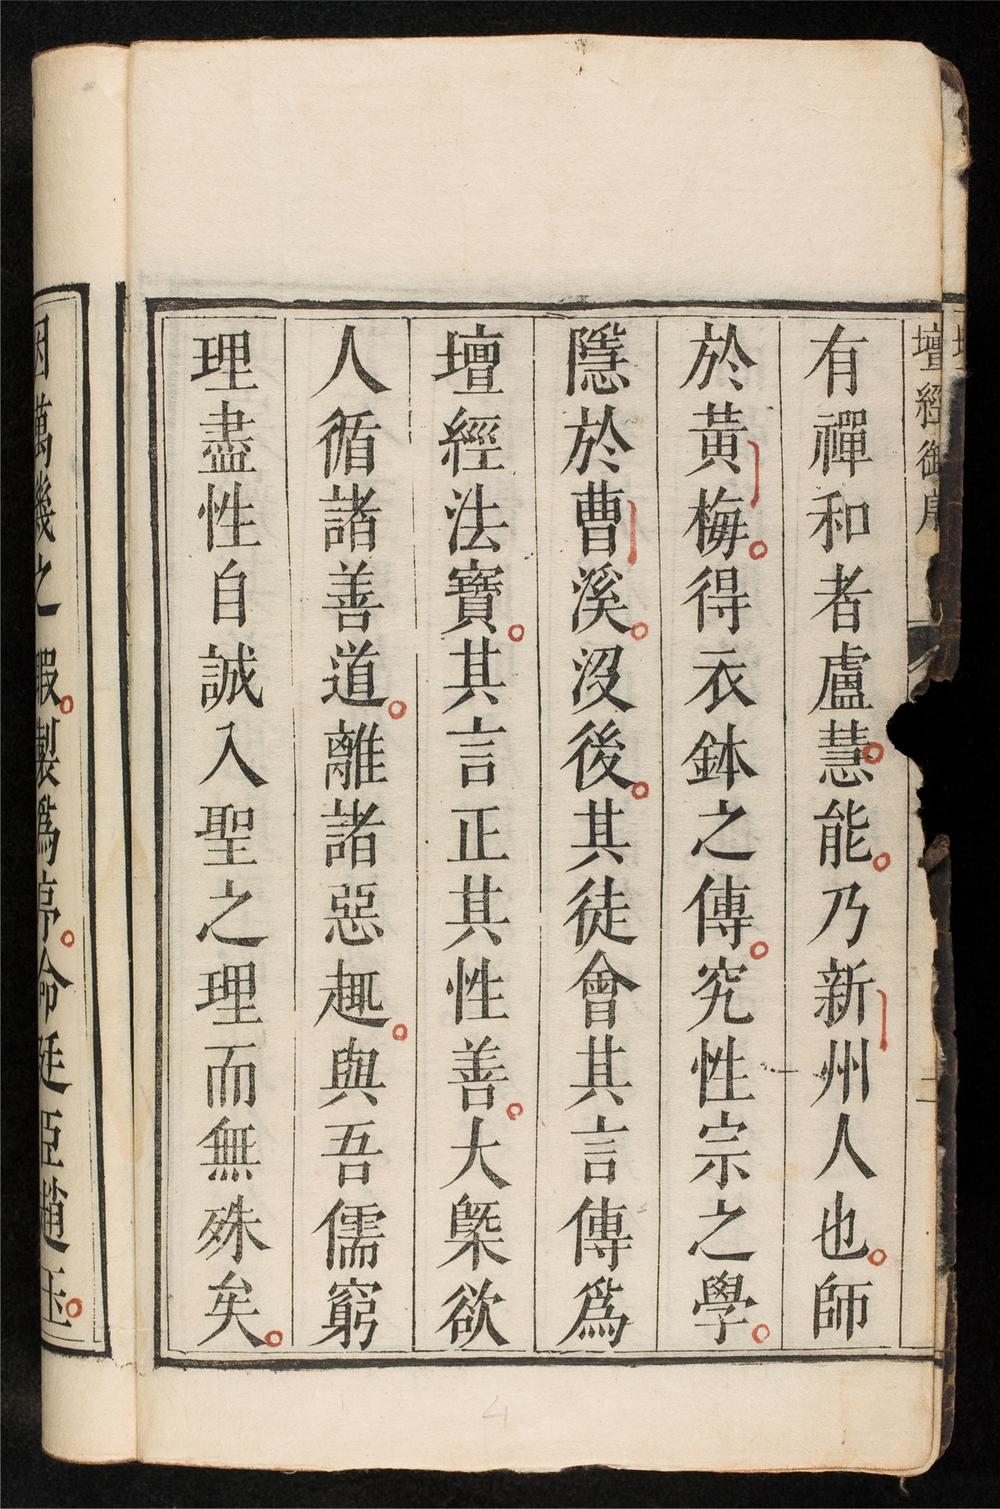 壇經御序
有禪和者盧慧能乃新州人也師
於黃梅得衣鉢之傳究性宗之學
隱於曹溪沒後其徒會其言傳爲
壇經法寶其言正其性善大槩欲
人循諸善道離諸惡趣與吾儒窮
理盡性自誠入聖之理而無殊矣
因萬幾之暇製爲序命廷臣趙玉